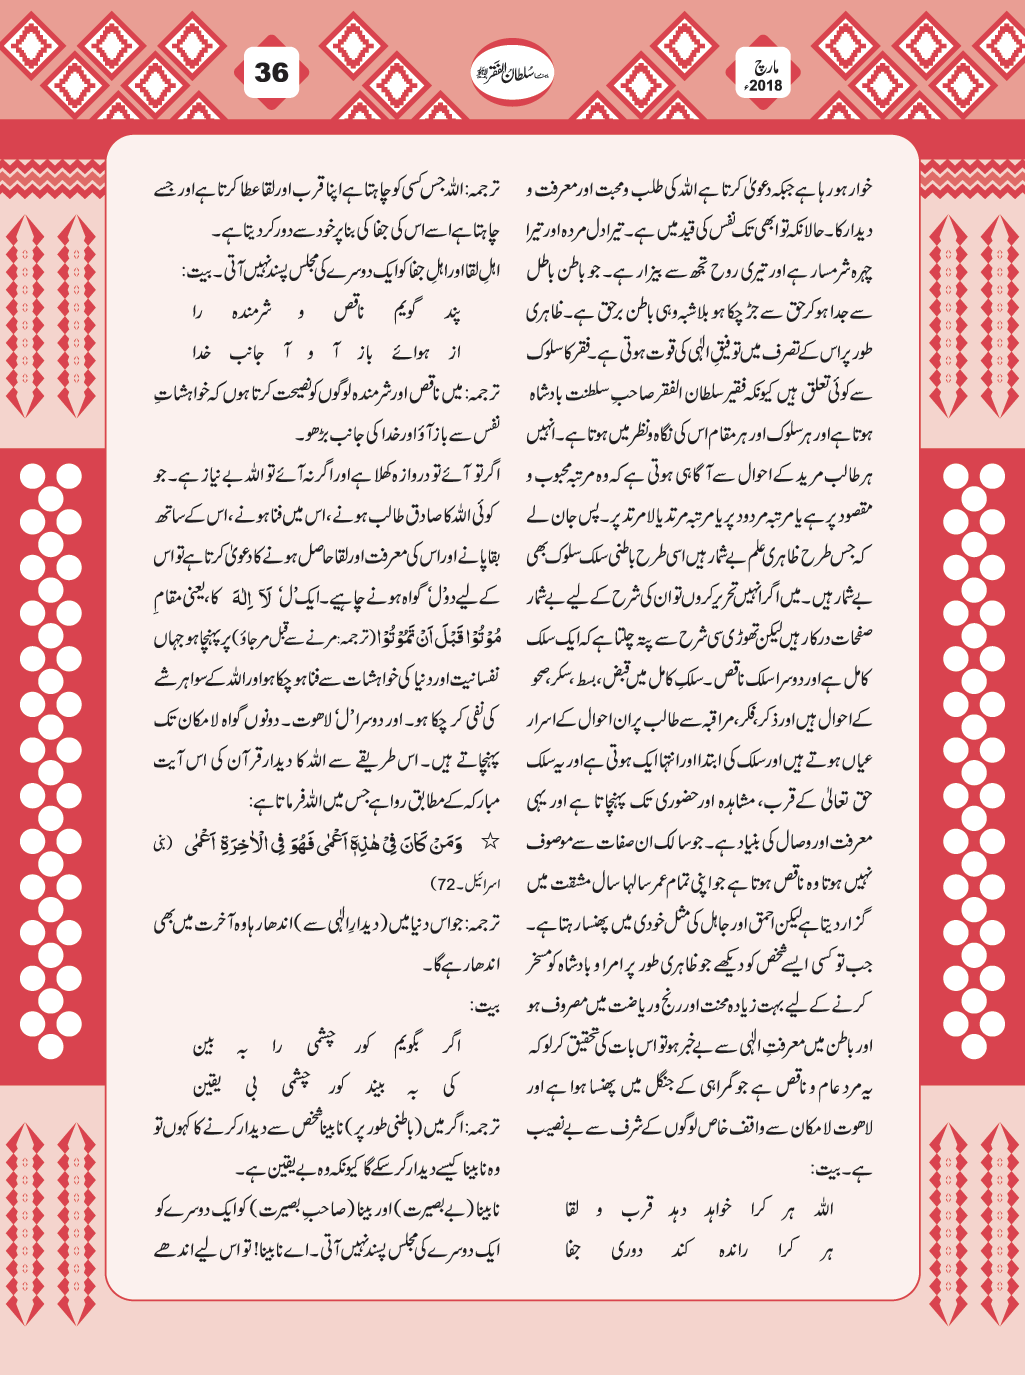 36
ماہنامہ سلطان الفقر
مارچ
2018ء
خوار ہو رہا ہے جبکہ دعویٰ کرتا ہے اللہ کی طلب و محبت اور معرفت و
دیدار کا۔ حالانکہ تو ابھی تک نفس کی قید میں ہے۔ تیرا دل مردہ اور تیرا
چہرہ شرمسار ہے اور تیری روح تجھ سے بیزار ہے۔ جو باطن باطل
سے جدا ہو کر حق سے جڑ چکا ہو بلاشبہ وہی باطن برحق ہے۔ ظاہری
طور پر اس کے تصرف میں توفیقِ الٰہی کی قوت ہوتی ہے۔ فقر کا سلوک
سے کوئی تعلق نہیں کیونکہ فقیر سلطان الفقر صاحبِ سلطنت بادشاہ
ہوتا ہے اور ہر سلوک اور ہر مقام اس کی نگاہ و نظر میں ہوتا ہے۔ انہیں
ہر طالب مرید کے احوال سے آگاہی ہوتی ہے کہ وہ مرتبہ محبوب و
مقصود پر ہے یا مرتبہ مردود پر یا مرتبہ مرتد یا لامرتد پر۔ پس جان لے
کہ جس طرح ظاہری علم بے شمار ہیں اسی طرح باطنی سلک سلوک بھی
بے شمار ہیں۔ میں اگر انہیں تحریر کروں تو ان کی شرح کے لیے بے شمار
صفحات درکار ہیں لیکن تھوڑی سی شرح سے پتہ چلتا ہے کہ ایک سلک
کامل ہے اور دوسرا سلک ناقص۔ سلکِ کامل میں قبض، بسط، سکر، صحو
کے احوال ہیں اور ذکر، فکر، مراقبہ سے طالب پر ان احوال کے اسرار
عیاں ہوتے ہیں اور سلک کی ابتدا اور انتہا ایک ہوتی ہے اور یہ سلک
حق تعالیٰ کے قرب، مشاہدہ اور حضوری تک پہنچاتا ہے اور یہی
معرفت اور وصال کی بنیاد ہے۔ جو سالک ان صفات سے موصوف
نہیں ہوتا وہ ناقص ہوتا ہے جو اپنی تمام عمر سالہا سال مشقت میں
گزار دیتا ہے لیکن احمق اور جاہل کی مثل خودی میں پھنسا رہتا ہے۔
جب تو کسی ایسے شخص کو دیکھے جو ظاہری طور پر امرا و بادشاہ کو مسخر
کرنے کے لیے بہت زیادہ محنت اور رنج و ریاضت میں مصروف ہو
اور باطن میں معرفتِ الٰہی سے بے خبر ہو تو اس بات کی تحقیق کر لو کہ
یہ مرد عام و ناقص ہے جو گمراہی کے جنگل میں پھنسا ہوا ہے اور
لاھوت لامکان سے واقف خاص لوگوں کے شرف سے بے نصیب
ہے۔ بیت:
اللہ ہر کرا خواہد دہد قرب و لقا
ہر کرا راندہ کند دوری جفا
ترجمہ: اللہ جس کسی کو چاہتا ہے اپنا قرب اور لقا عطا کرتا ہے اور جسے
چاہتا ہے اسے اس کی جفا کی بنا پر خود سے دور کر دیتا ہے۔
اہلِ لقا اور اہلِ جفا کو ایک دوسرے کی مجلس پسند نہیں آتی۔ بیت:
پند گویم ناقص و شرمندہ را
از ہوائے باز آ و آ جانب خدا
ترجمہ: میں ناقص اور شرمندہ لوگوں کو نصیحت کرتا ہوں کہ خواہشاتِ
نفس سے باز آؤ اور خدا کی جانب بڑھو۔
اگر تو آئے تو دروازہ کھلا ہے اور اگر نہ آئے تو اللہ بے نیاز ہے۔ جو
کوئی اللہ کا صادق طالب ہونے، اس میں فنا ہونے، اس کے ساتھ
بقا پانے اور اس کی معرفت اور لقا حاصل ہونے کا دعویٰ کرتا ہے تو اس
کے لیے دو 'ل' گواہ ہونے چاہیے۔ ایک 'ل' لَآ اِلٰهَ کا، یعنی مقامِ
مُوْتُوْا قَبْلَ اَنْ تَمُوْتُوْا (ترجمہ: مرنے سے قبل مر جاؤ) پر پہنچا ہو جہاں
نفسانیت اور دنیا کی خواہشات سے فنا ہو چکا ہو اور اللہ کے سوا ہر شے
کی نفی کر چکا ہو۔ اور دوسرا 'ل' لاھوت۔ دونوں گواہ لامکان تک
پہنچاتے ہیں۔ اس طریقے سے اللہ کا دیدار قرآن کی اس آیت
مبارکہ کے مطابق روا ہے جس میں اللہ فرماتا ہے:
☆ وَمَنْ كَانَ فِیْ هٰذِهٖٓ اَعْمٰی فَهُوَ فِی الْاٰخِرَةِ اَعْمٰی (بنی
اسرائیل۔72)
ترجمہ: جو اس دنیا میں (دیدارِ الٰہی سے) اندھا رہا وہ آخرت میں بھی
اندھا رہے گا۔
بیت:
اگر بگویم کور چشمی را بہ بین
کی بہ بیند کور چشمی بی یقین
ترجمہ: اگر میں (باطنی طور پر) نابینا شخص سے دیدار کرنے کا کہوں تو
وہ نابینا کیسے دیدار کر سکے گا کیونکہ وہ بے یقین ہے۔
نابینا (بے بصیرت) اور بینا (صاحبِ بصیرت) کو ایک دوسرے کو
ایک دوسرے کی مجلس پسند نہیں آتی۔ اے نابینا! تو اس لیے اندھے